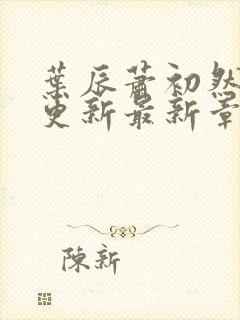 葉辰蕭初然
更新最新章
陳新